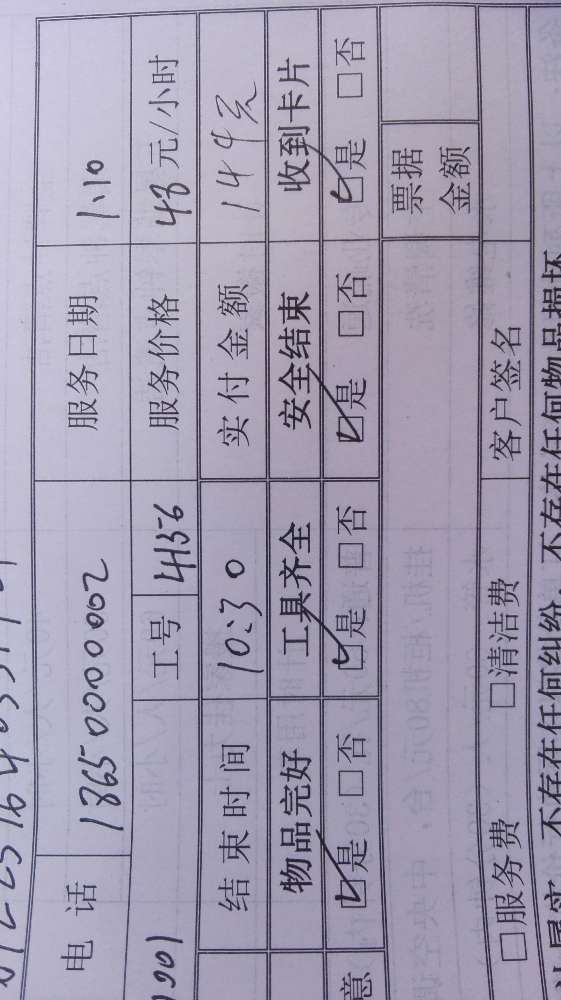 电 话 18650000002 服务日期 1.10
1001 工号 4156 服务价格 48 元/小时
结束时间 10:30 实付金额 144元
物品完好 工具齐全 安全结束 收到卡片
☑是 □否 ☑是 □否 ☑是 □否 ☑是 □否
意
票据金额
□服务费 □清洁费 客户签名
属实,不存在任何纠纷,不存在任何物品损坏